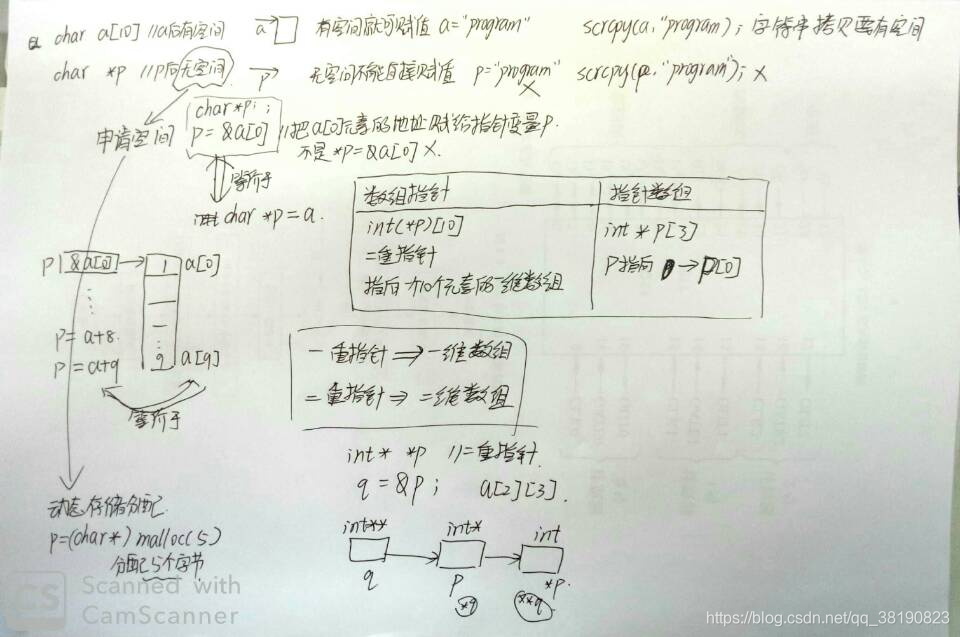 char a[10] //a后有空间 a→ 有空间就可赋值 a="program" scrcpy(a,"program"); 字符串拷贝要有空间
char *p //p后无空间 p→ 无空间不能直接赋值 p="program" × scrcpy(p,"program"); ×
申请空间
char*p;
p=&a[0] //把a[0]元素的地址赋给指针变量p.
不是 *p=&a[0] ×.
等价于
char *p=a.
数组指针 指针数组
int(*p)[10] int *p[3]
二重指针 p指向 →p[0]
指向一个10个元素的一维数组
p &a[0] → 1 a[0]
p=a+8.
p=a+9 9 a[9]
等价于
一重指针⇒一维数组
二重指针⇒二维数组
int* *p //二重指针.
q=&p; a[2][3].
动态存储分配
p=(char*)malloc(5)
分配5个字节
int** int* int
q p *p.
*q **q
CS Scanned with
CamScanner
https://blog.csdn.net/qq_38190823